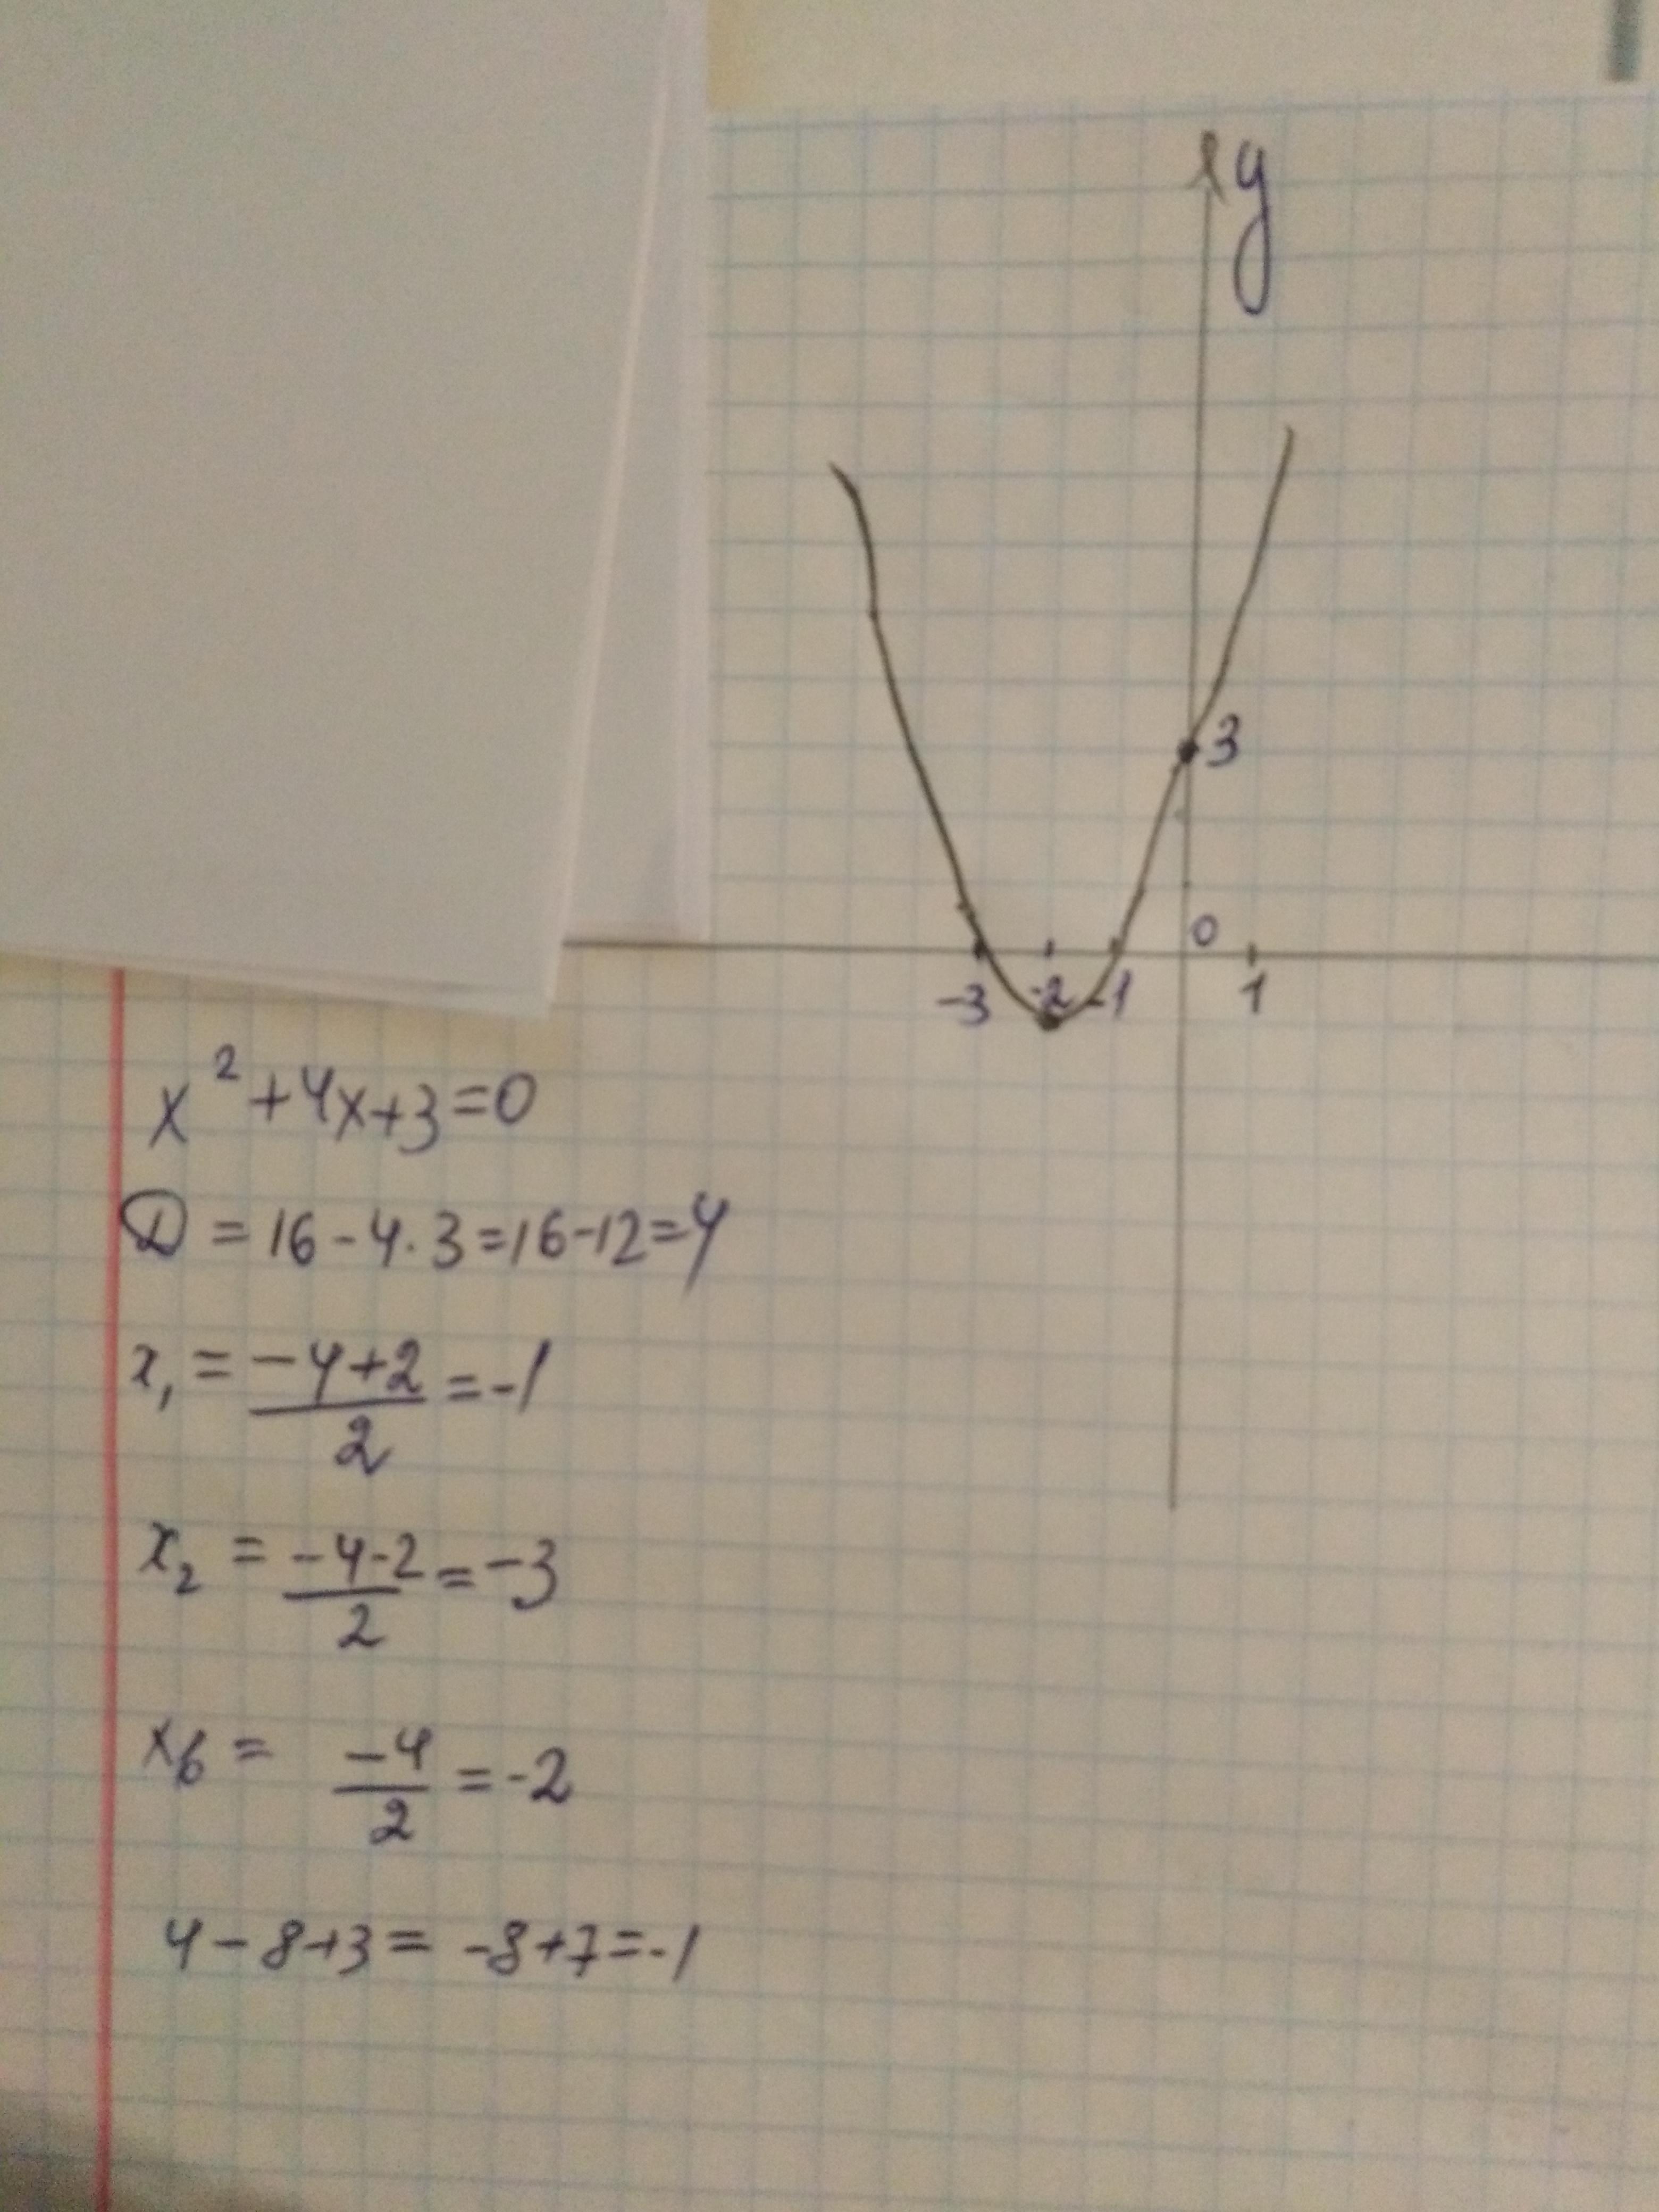 y
3
0
-3 -2 -1 1
x² + 4x + 3 = 0
D = 16 - 4 · 3 = 16 - 12 = 4
x₁ = (-4+2)/2 = -1
x₂ = (-4-2)/2 = -3
xв = -4/2 = -2
4 - 8 + 3 = -8 + 7 = -1